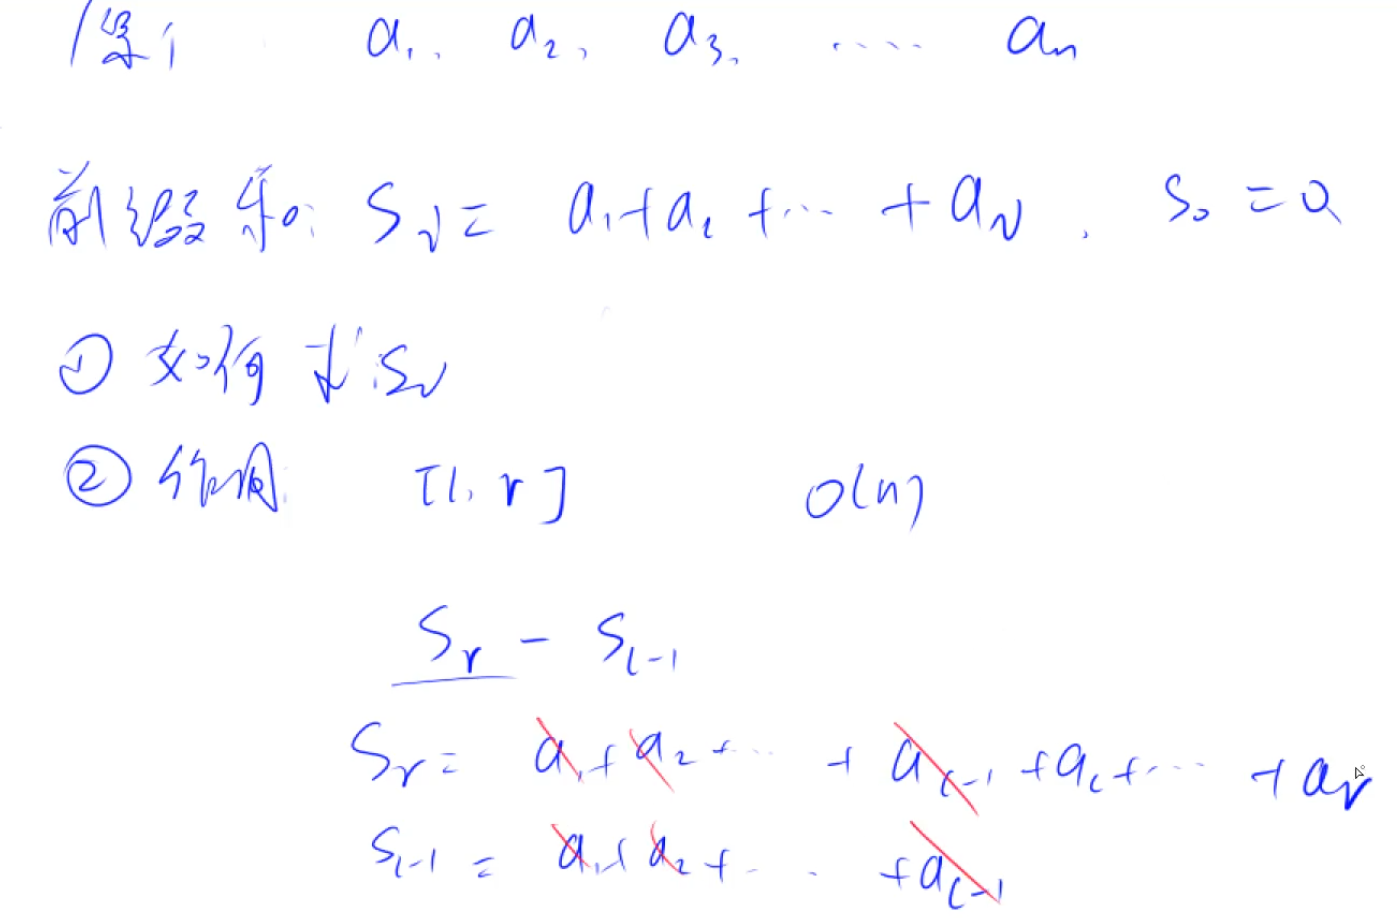 原 a₁, a₂, a₃, ..... aₙ
前缀和: Sᵢ = a₁+a₂ +... + aᵢ. S₀ = 0
① 如何求Sᵢ
② 作用 [l, r] O(n)
Sᵣ - Sₗ₋₁
Sᵣ = a₁+a₂+... + aₗ₋₁ +aₗ+... + aᵣ
Sₗ₋₁ = a₁+a₂+... +aₗ₋₁